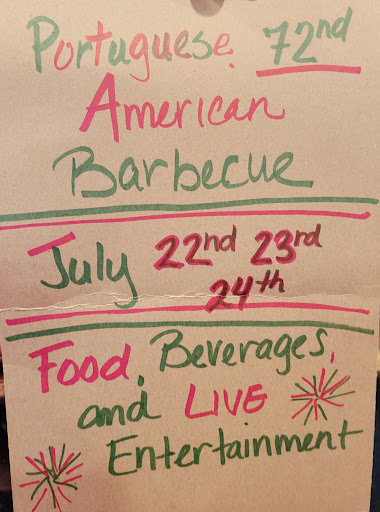 Portuguese 72nd
American
Barbecue
July 22nd 23rd
24th
Food, Beverages,
and LIVE
Entertainment